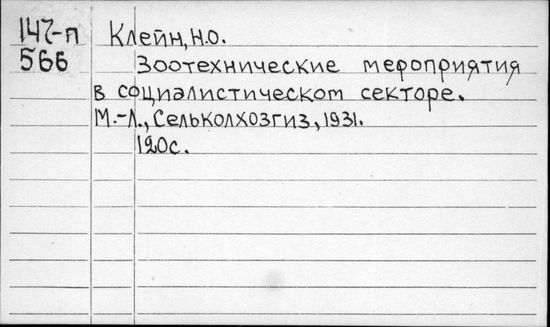 147-п Клейн, Н.О.
566 Зоотехнические мероприятия
в социалистическом секторе.
М.-Л., Сельколхозгиз, 1931.
120с.